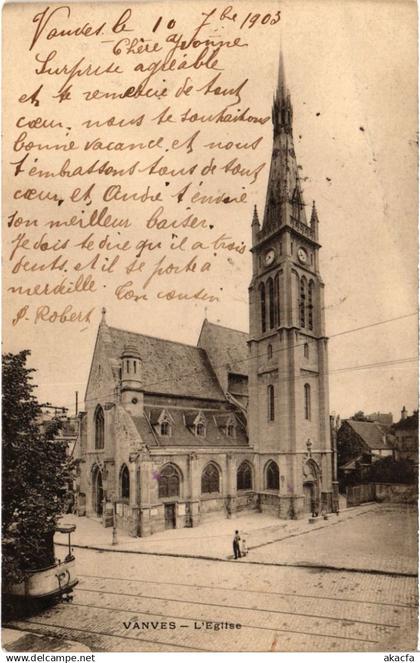 Vanves le 10 7bre 1903
Chère Yvonne
Surprise agréable
et te remercie de tout
cœur, nous te souhaitons
bonne vacance et nous
t'embrassons tous de tout
cœur, et André t'envoie
son meilleur baiser.
Je dois te dire qu'il a trois
dents. et il se porte à
merveille. Ton cousin
P. Robert
VANVES — L'Eglise
www.akcafe.com